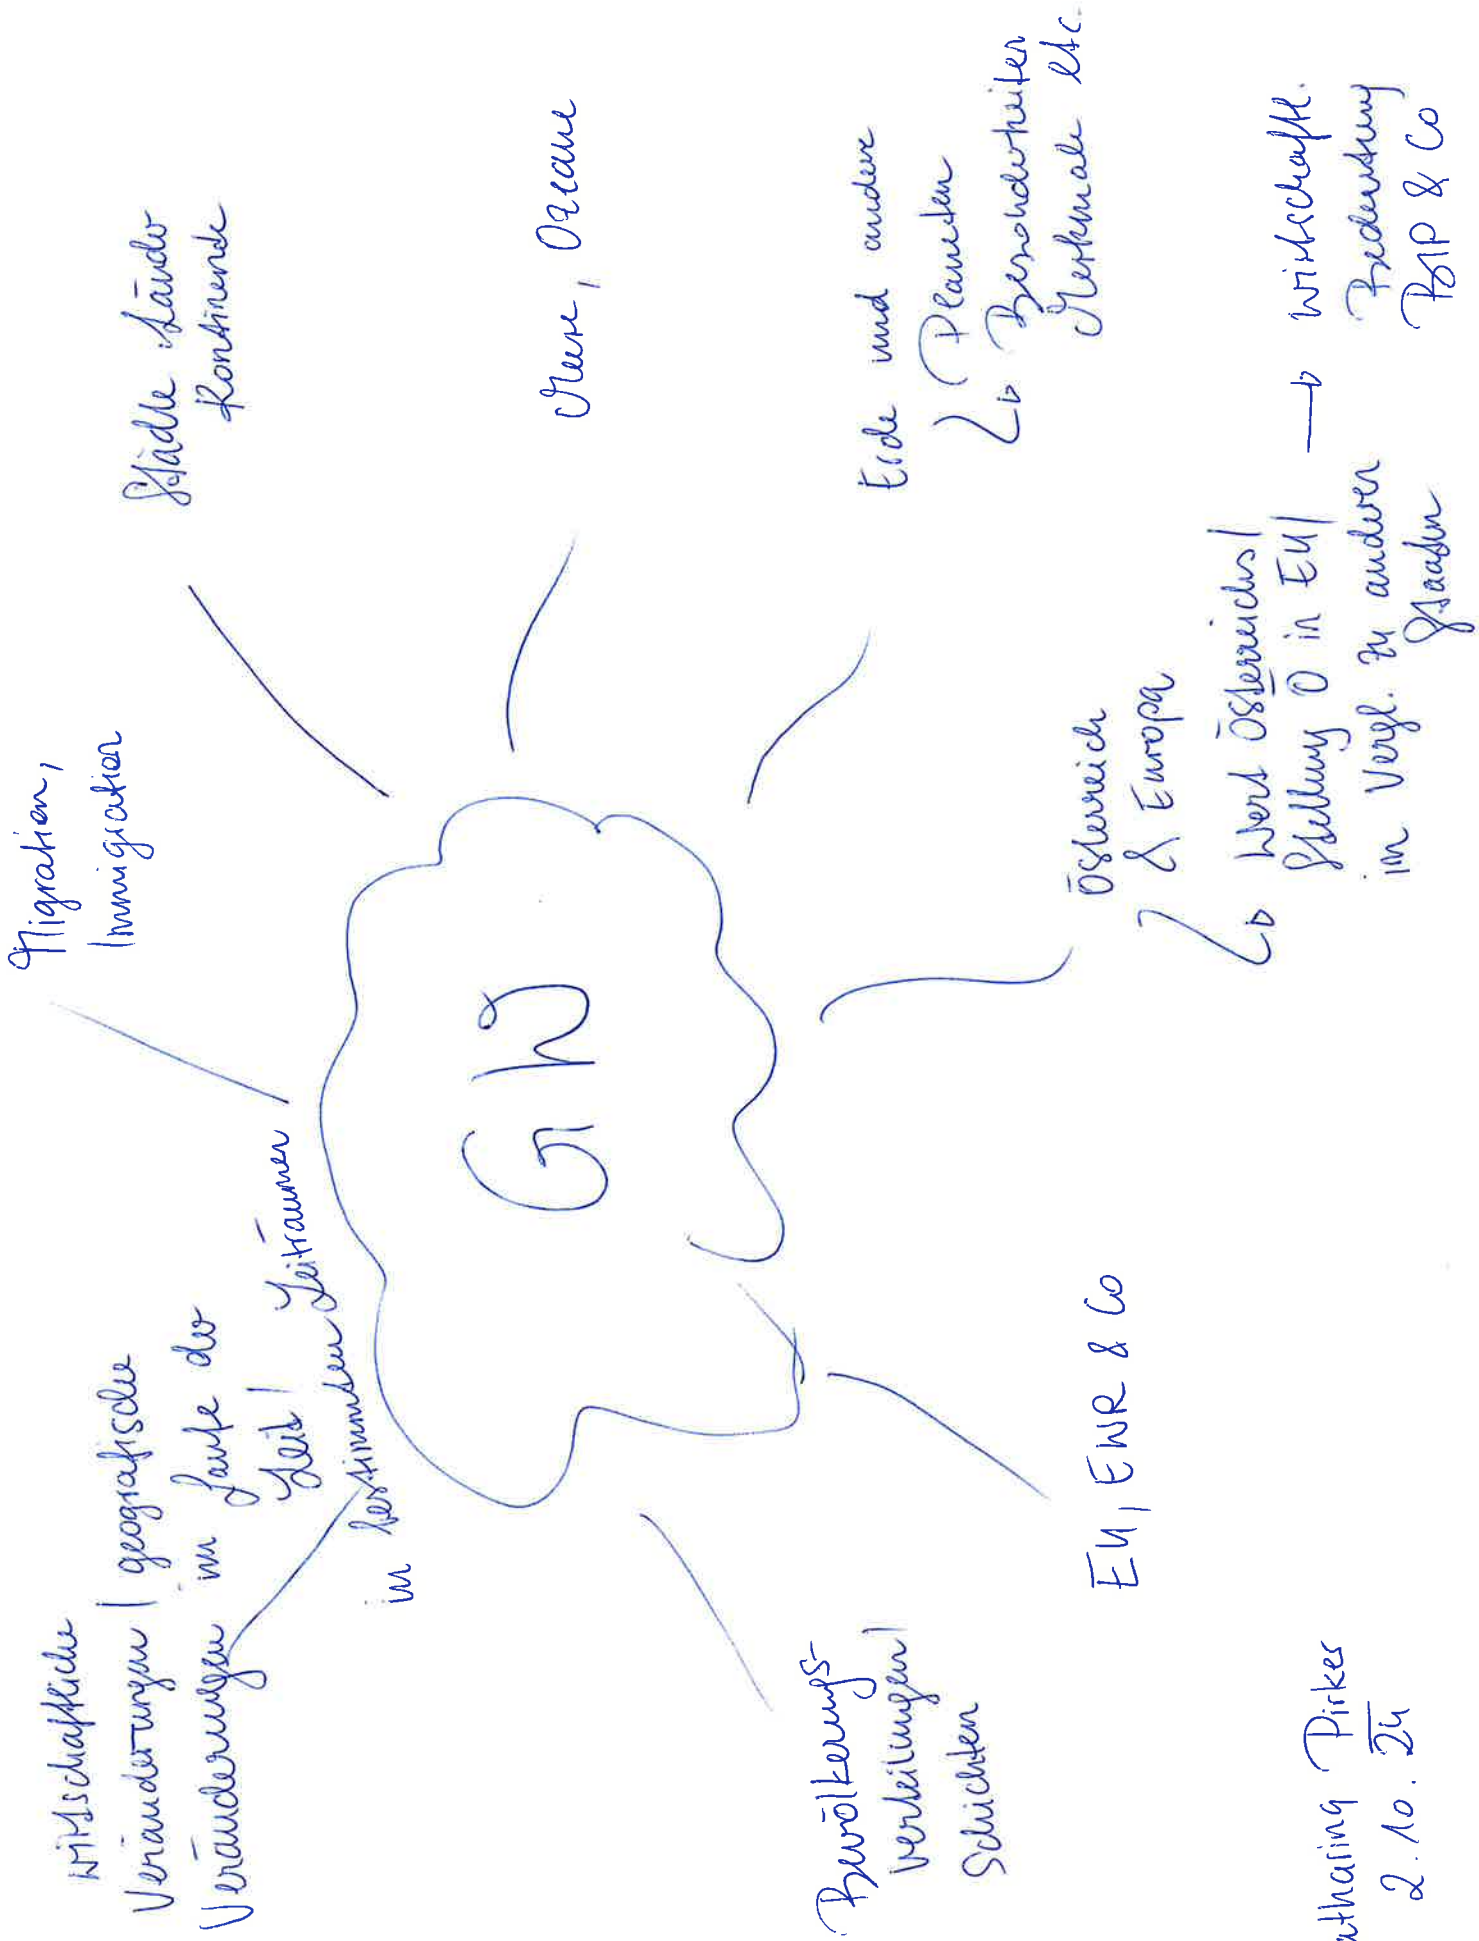 wirtschaftliche
Veränderungen / geografische
Veränderungen im Laufe der
Zeit /
in bestimmten Zeiträumen
Migration,
Immigration
Städte Länder
Kontinente
Meere, Ozeane
Erde und andere
Planeten
Besonderheiten
Merkmale etc.
Österreich
& Europa
Wert Österreichs /
Stellung Ö in EU /
im Vergl. zu anderen
Staaten
→ wirtschaftl.
Bedeutung
BIP & Co
EU, EWR & Co
Bevölkerungs-
verteilungen /
Schichten
GW
atharina Pirker
2.10.24